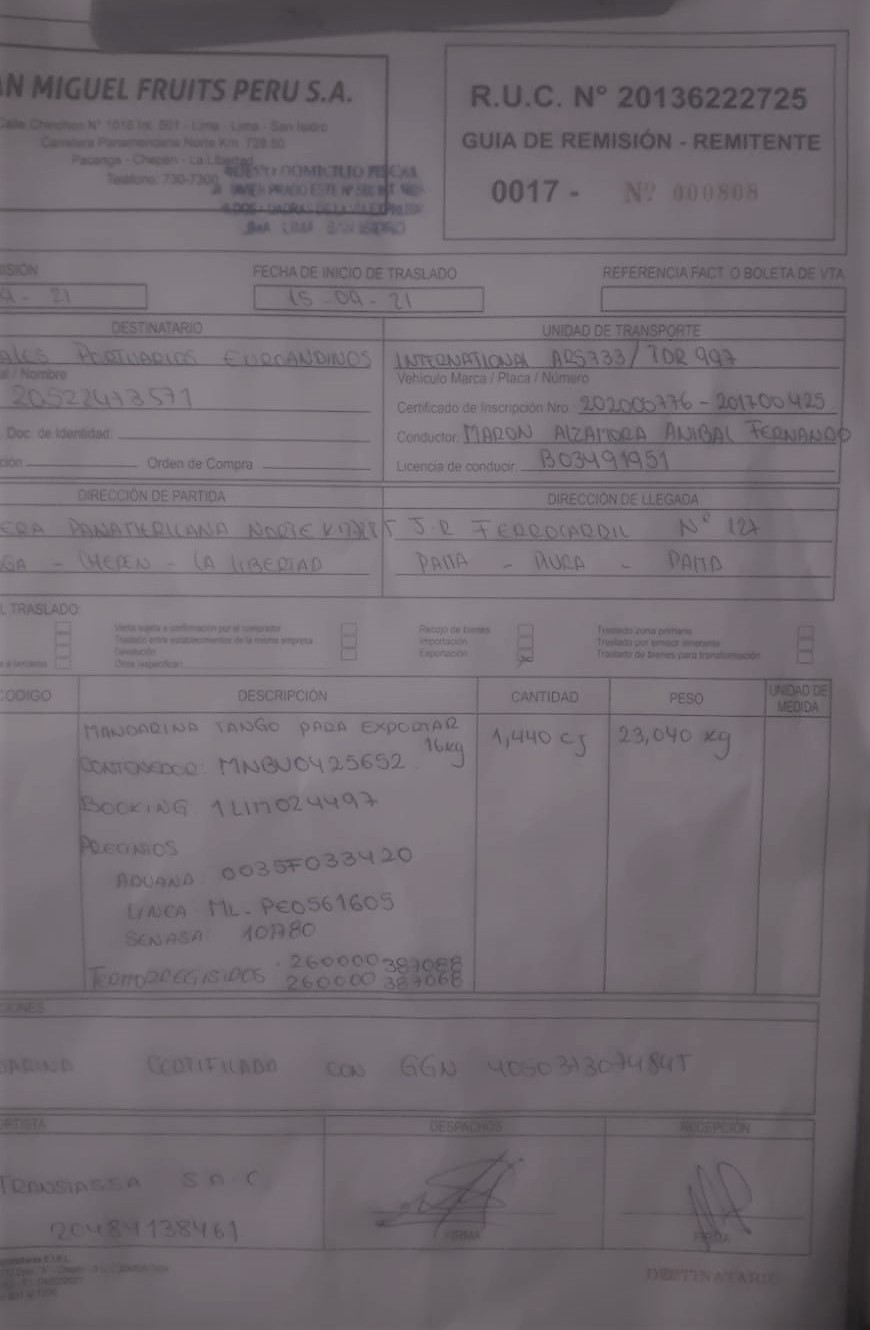 N MIGUEL FRUITS PERU S.A.
Calle Chinchon N° 1018 Int. 501 - Lima - Lima - San Isidro
Carretera Panamericana Norte Km. 728.50
Pacanga - Chepén - La Libertad
Teléfono: 730-7300
DOMICILIO FISCAL
LIMA LIMA SAN ISIDRO
R.U.C. N° 20136222725
GUIA DE REMISIÓN - REMITENTE
0017 - Nº 000808
ISIÓN
FECHA DE INICIO DE TRASLADO
REFERENCIA FACT. O BOLETA DE VTA
9 - 21
15 - 09 - 21
DESTINATARIO
UNIDAD DE TRANSPORTE
ALES PORTUARIOS EUROANDINOS
INTERNATIONAL ARS733/ TDR 997
al / Nombre
Vehículo Marca / Placa / Número
20522473571
Certificado de Inscripción Nro. 202000776 - 201700425
Doc. de Identidad:
Conductor: MARON ALZAMORA ANIBAL FERNANDO
ción
Orden de Compra
Licencia de conducir: B03491951
DIRECCIÓN DE PARTIDA
DIRECCIÓN DE LLEGADA
ERA PANAMERICANA NORTE
JR FERROCARRIL N° 127
GA - CHEPEN - LA LIBERTAD
PAITA - PIURA - PAITA
L TRASLADO:
Venta sujeta a confirmación por el comprador
Traslado entre establecimientos de la misma empresa
Devolución
Otros (especificar)
Recojo de bienes
Importación
Exportación
Traslado zona primaria
Traslado por emisor itinerante
Traslado de bienes para transformación
CODIGO
DESCRIPCIÓN
CANTIDAD
PESO
UNIDAD DE MEDIDA
MANDARINA TANGO PARA EXPORTAR
16kg
1,440 cj
23,040 kg
CONTENEDOR: MNBU0425652
BOOKING: 1LIM024497
PRECINTOS
ADUANA: 0035F033420
LINEA: ML-PE0561605
SENASA: 101780
TERMOREGISTROS
260000 387068
CIONES
DARINA CERTIFICADA CON GGN
ORTISTA
DESPACHOS
RECEPCIÓN
TRANSIASSA S A C
20484138461
FIRMA
FIRMA
DESTINATARIO